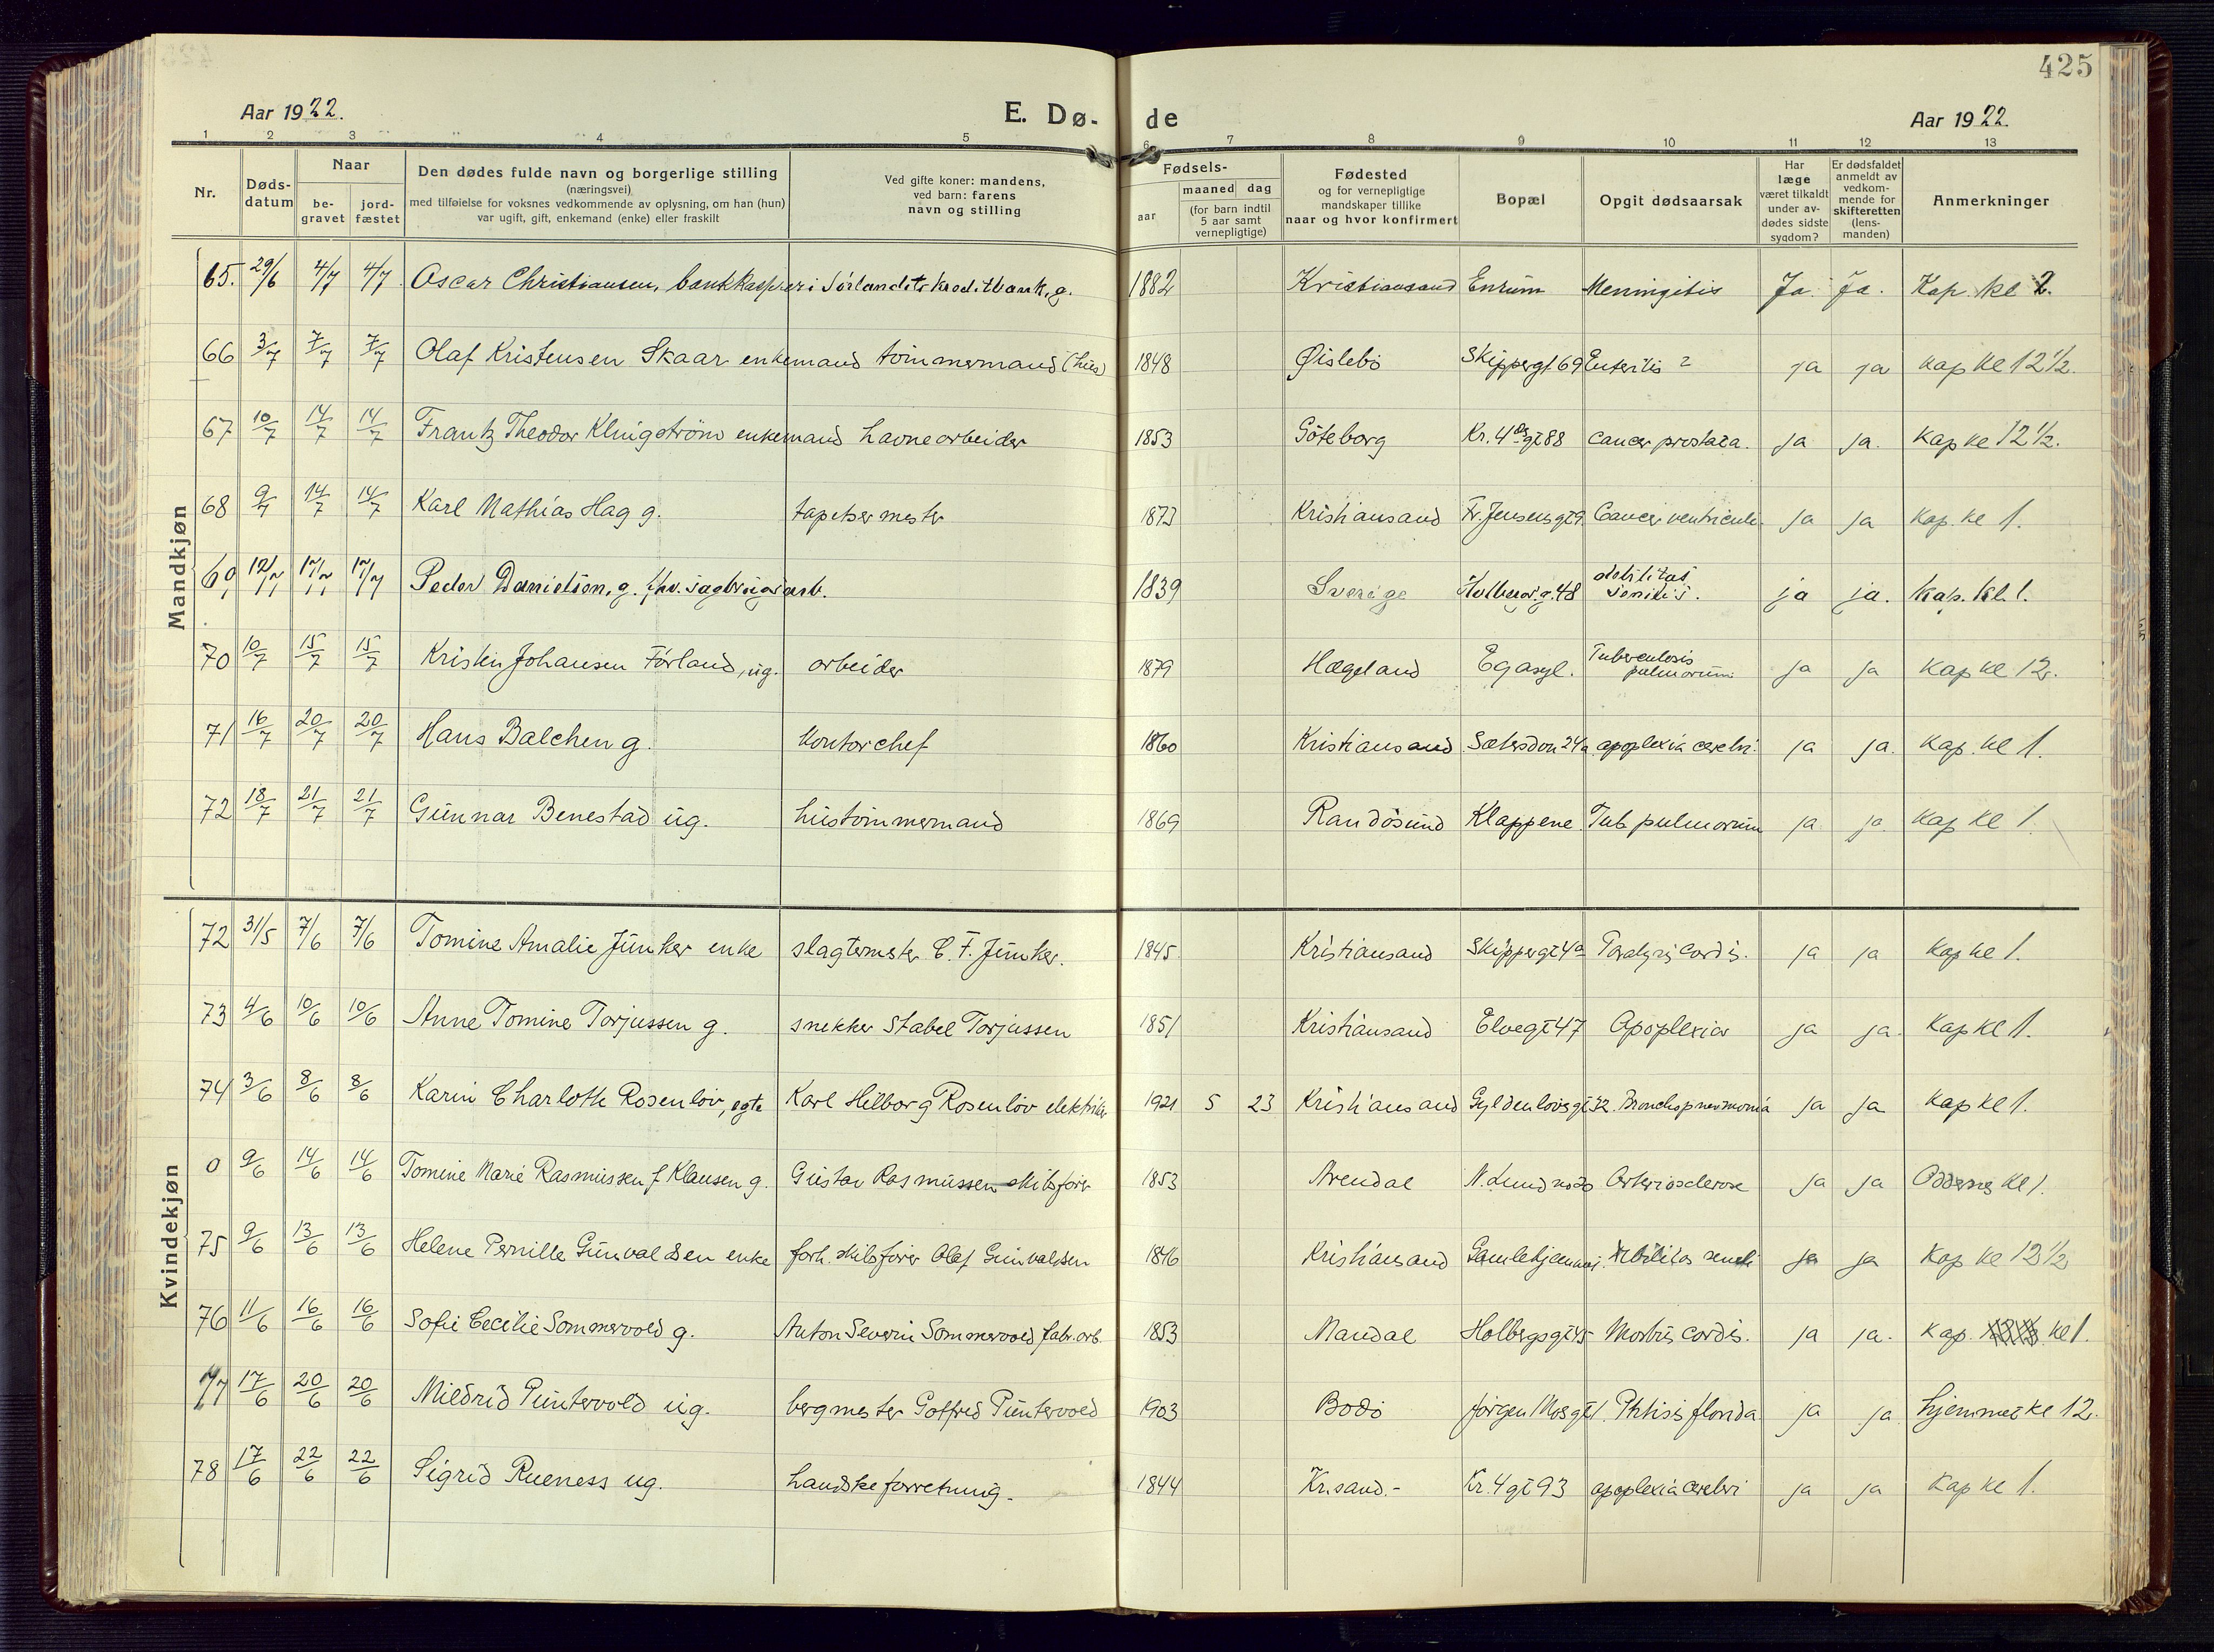 425
Aar 1922.
E. Dø-
de
Aar 1922.
1 2 3 4 5 6 7 8 9 10 11 12 13
Nr.
Døds-
datum
Naar
be-
gravet
jord-
fæstet
Den dødes fulde navn og borgerlige stilling
(næringsvei)
med tilføielse for voksnes vedkommende av oplysning, om han (hun)
var ugift, gift, enkemand (enke) eller fraskilt
Ved gifte koner: mandens,
ved barn: farens
navn og stilling
Fødsels-
aar
maaned dag
(for barn indtil
5 aar samt
vernepligtige)
Fødested
og for vernepligtige
mandskaper tillike
naar og hvor konfirmert
Bopæl
Opgit dødsaarsak
Har
læge
været tilkaldt
under av-
dødes sidste
sygdom?
Er dødsfaldet
anmeldt av
vedkom-
mende for
skifteretten
(lens-
manden)
Anmerkninger
Mandkjøn
65. 29/6 4/7 4/7 Oscar Christiansen, bankkasserer i Sørlandets kreditbank, g. 1882 Kristiansand Enrum Meningitis Ja. Ja. Kap. kl 2.
66 3/7 7/7 7/7 Olaf Kristensen Skaar enkemand tømmermand (hus) 1848 Øislebø Skippergt. 69 Enteritis ? ja ja kap kl 12 1/2.
67 10/7 14/7 14/7 Frantz Theodor Klingstrøm enkemand havnearbeider 1853 Göteborg Kr. 4des gt 88 cancer prostata. ja ja. kap kl 12 1/2.
68 9/7 14/7 14/7 Karl Mathias Hag g. tapetsermester 1873 Kristiansand Fr. Jensensgt 9 Cancer ventriculi. ja ja kap. kl 1.
69 12/7 17/7 17/7 Peder Danielsen, g. fhv. sagbrugsarb. 1839 Sverige Holbergs.g. 48 debilitas
senilis. ja ja. Kap. kl. 1.
70 10/7 15/7 15/7 Kristen Johansen Førland, ug. arbeider 1879 Hægeland Egasyl. Tuberculosis
pulmorum ja ja kap kl 12.
71 16/7 20/7 20/7 Hans Balchen g. kontorchef 1860 Kristiansand Sætersdon 24a apoplexia cerebri. ja ja. kap. kl 1.
72 18/7 21/7 21/7 Gunnar Benestad ug. hustømmermand 1869 Randøsund Klappene. Tub pulmorum ja ja. kap kl 1.
Kvindekjøn
72 31/5 7/6 7/6 Tomine Amalie Junker enke slagtermester C. F. Junker. 1845. Kristiansand Skippergt 4a Paralysis cordis. ja ja kap kl 1.
73 4/6 10/6 10/6 Anne Tomine Torjussen g. snekker Stabel Torjussen 1851 Kristiansand Elvegt 47 Apoplexia ja ja. kap kl 1.
74 3/6 8/6 8/6 Karin Charlotte Rosenløv, egte Karl Hilborg Rosenløv elektriker 1921 5 23 Kristiansand Gyldenløvesgt 32. Bronchopneumonia ja ja kap kl 1.
0 9/6 14/6 14/6 Tomine Marie Rasmussen f Klausen g. Gustav Rasmussen skibsfører 1853 Arendal N. Lund no 20 Arteriosclerose ja ja Oddernes kl 1.
75 9/6 13/6 13/6 Helene Pernille Gunvaldsen enke forh. skibsfører Olaf Gunvaldsen 1846 Kristiansand Gamlehjemmet. debilitas senilis ja ja Kap kl 12 1/2
76 11/6 16/6 16/6 Sofie Cecilie Sommervold g. Anton Severin Sommervold fabr. arb. 1853 Mandal Holbergsgt 45 Morbus cordis. ja ja. kap. kl 1.
77 17/6 20/6 20/6 Mildrid Puntervold ug. bergmester Gotfred Puntervold 1903 Bodø Jørgen Moes gt 1. Phtisis florida ja ja hjemmet kl 12.
78 17/6 22/6 22/6 Sigrid Rueness ug. handskeforretning. 1844 Kr.sand.- Kr. 4 gt 93 apoplexia cerebri ja ja kap kl 1.